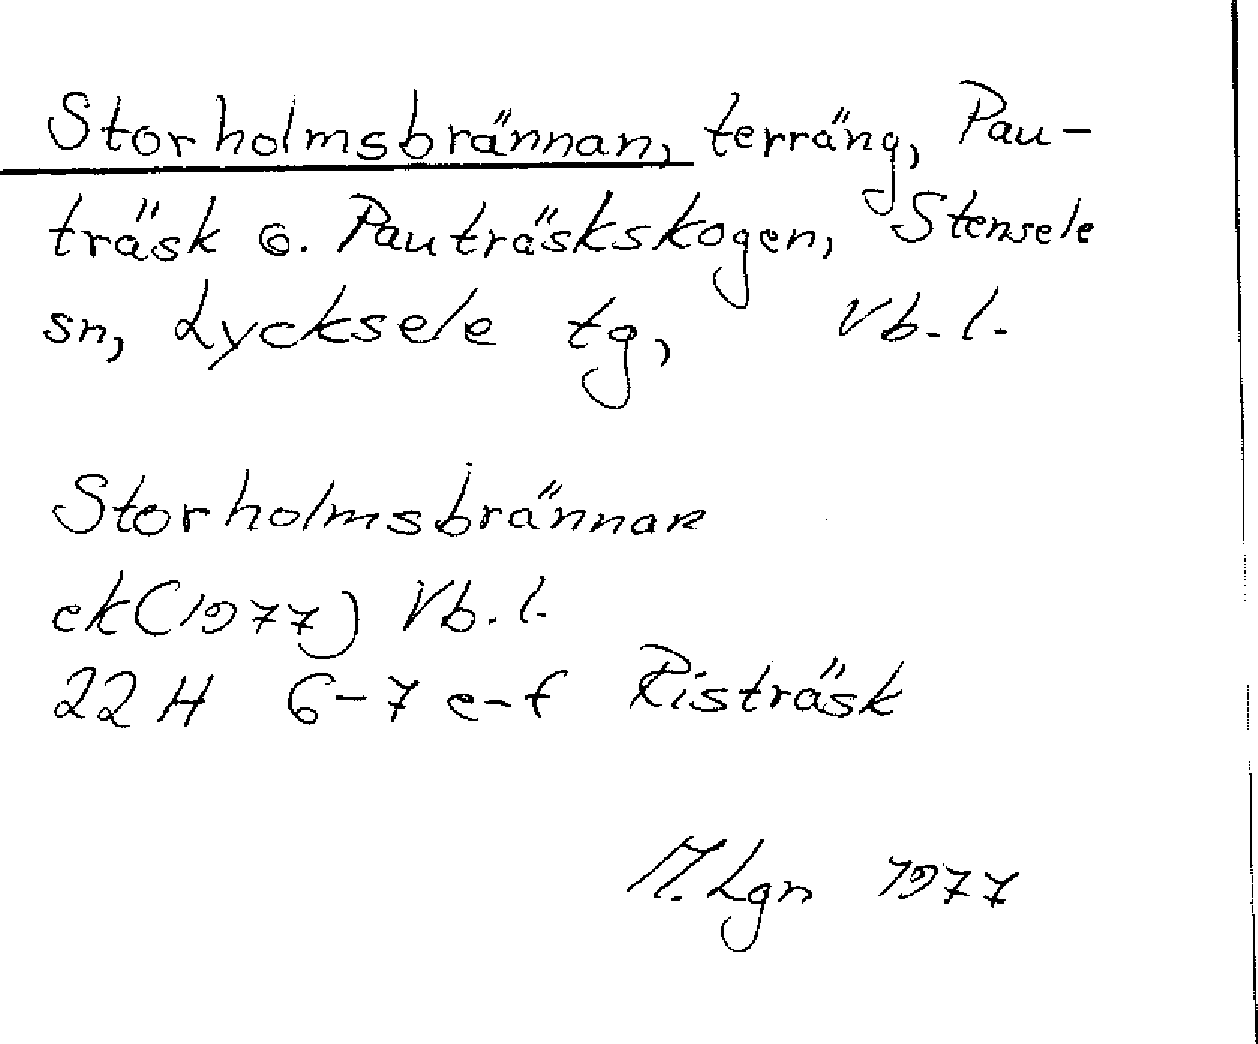 Storholmsbrännan, terräng, Pau-
träsk o. Pauträskskogen, Stensele
sn, Lycksele tg, Vb. l.
Storholmsbrännan
ek (1977) Vb. l.
22 H 6-7 e-f Risträsk
M. Lgn 1977